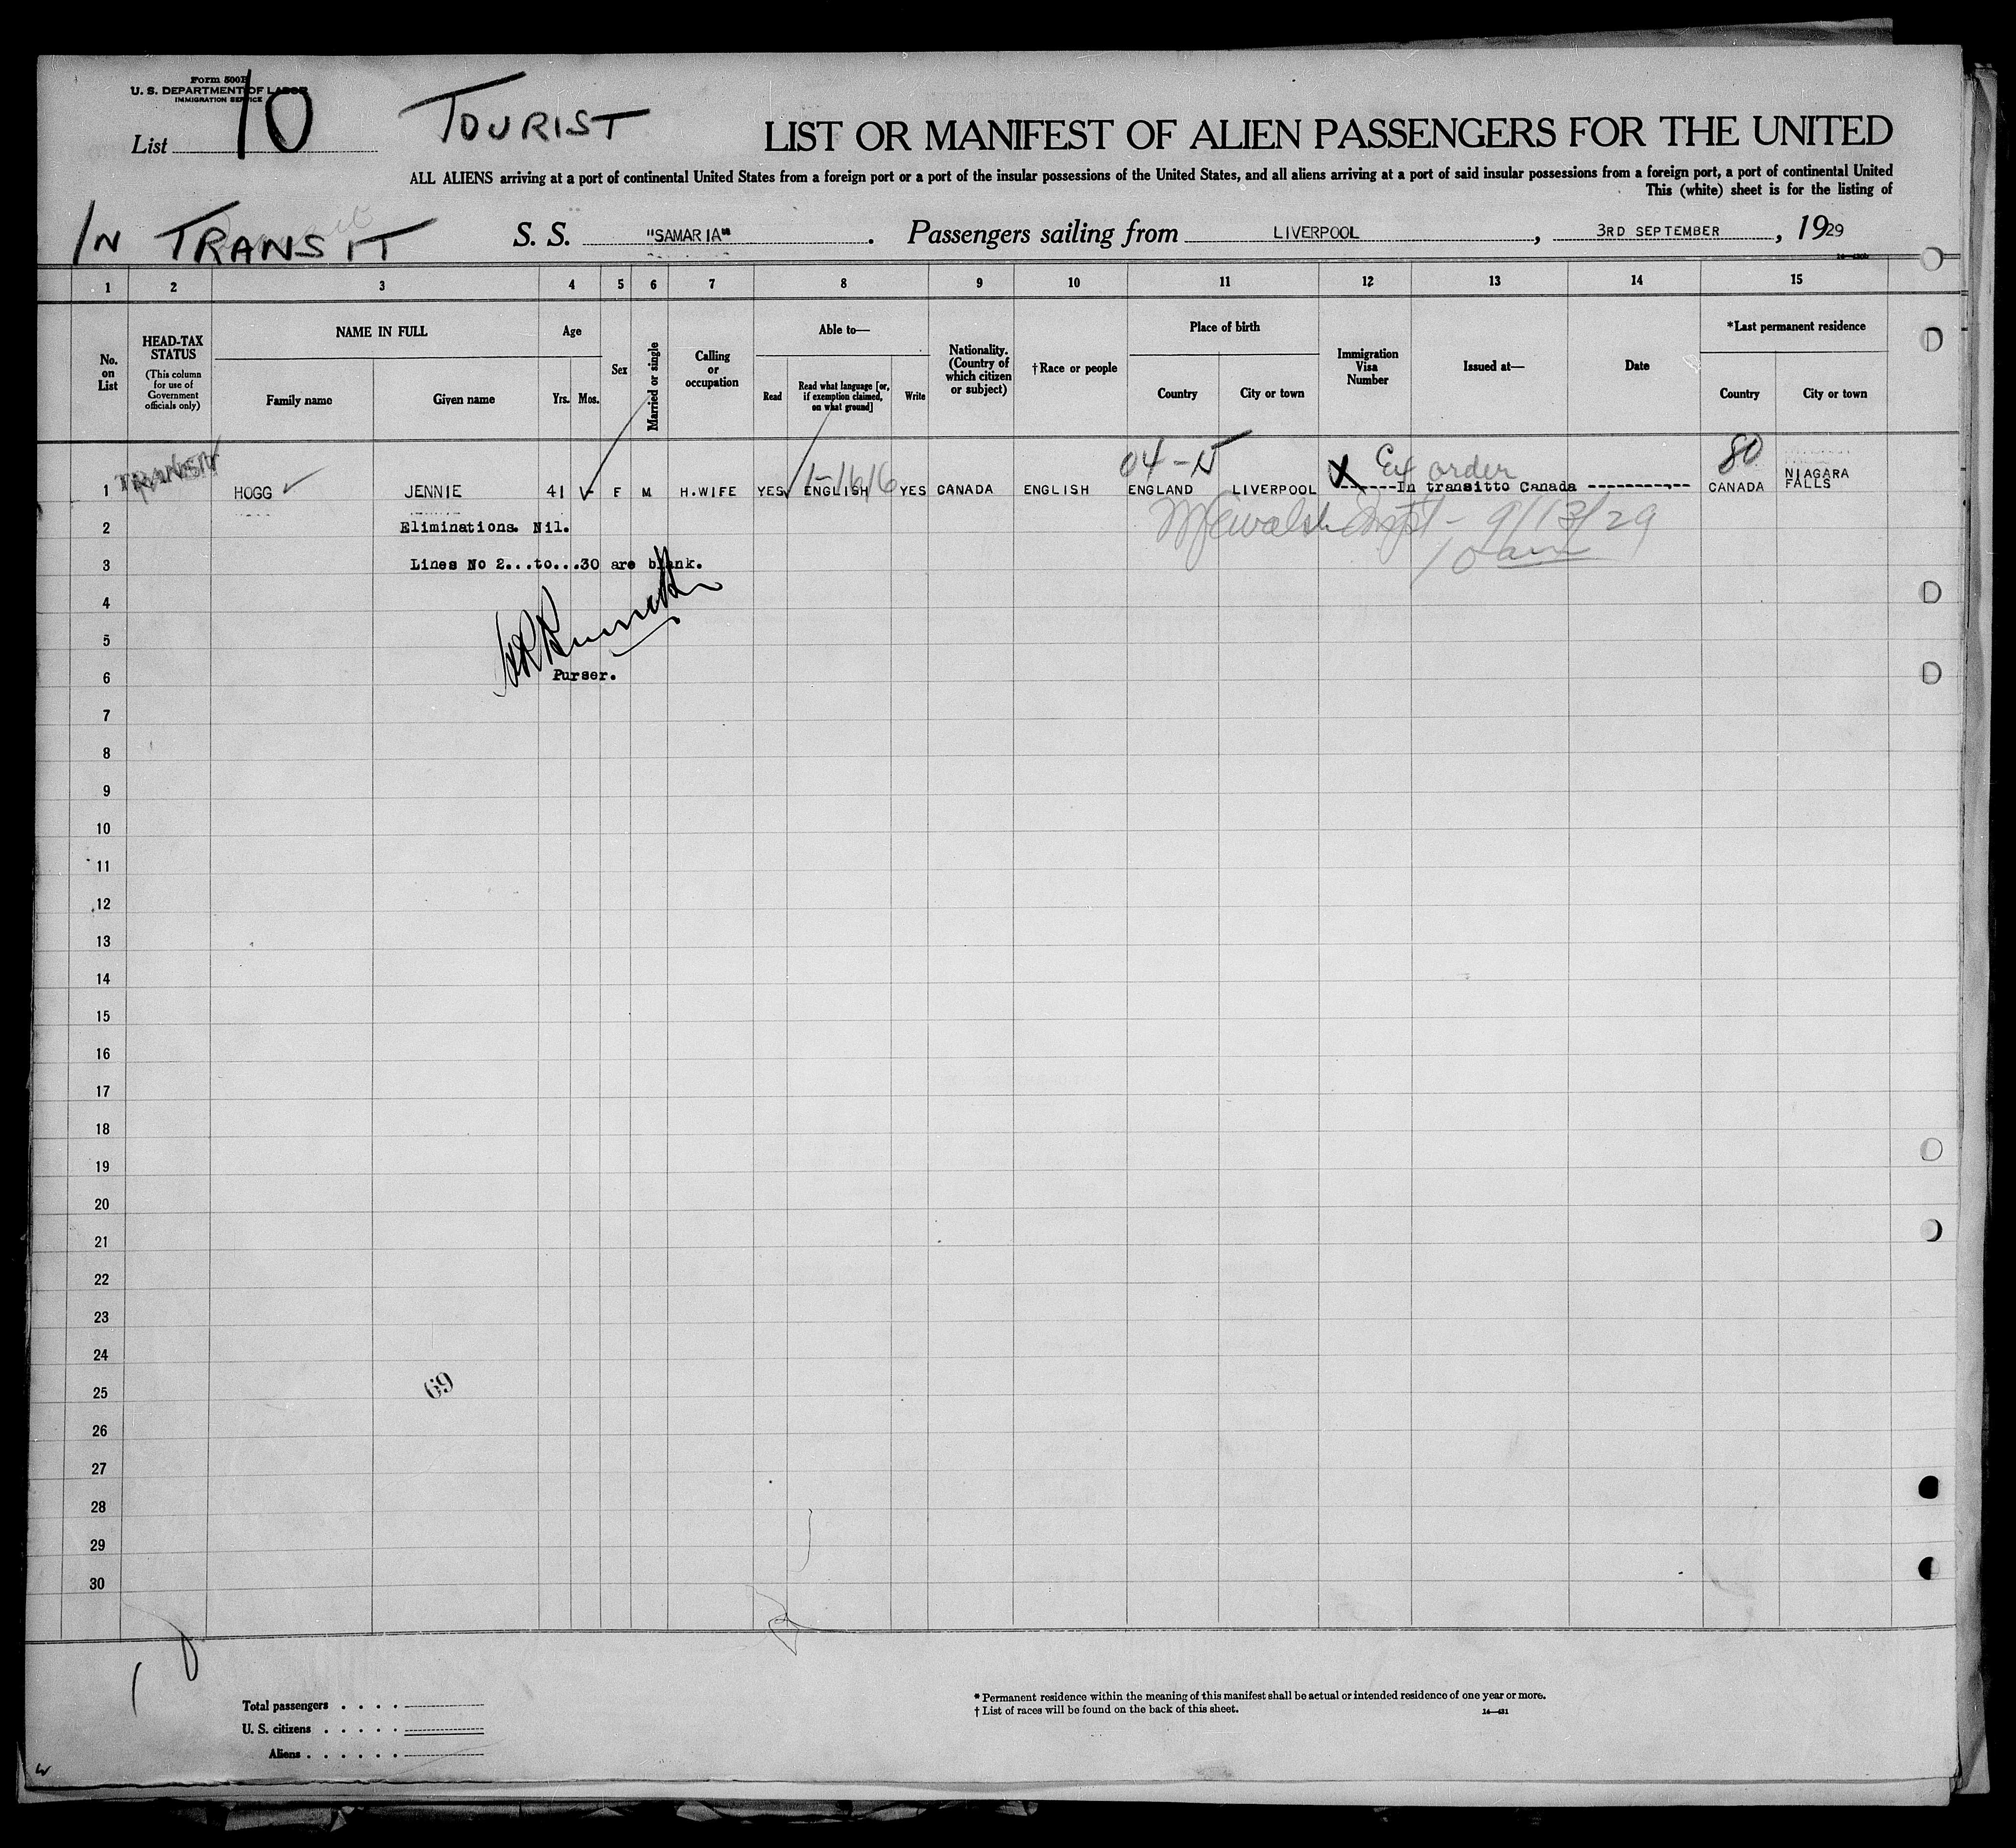 Form 500B
U. S. DEPARTMENT OF LABOR
IMMIGRATION SERVICE
List 10
TOURIST
LIST OR MANIFEST OF ALIEN PASSENGERS FOR THE UNITED
ALL ALIENS arriving at a port of continental United States from a foreign port or a port of the insular possessions of the United States, and all aliens arriving at a port of said insular possessions from a foreign port, a port of continental United
This (white) sheet is for the listing of
IN TRANSIT
S. S. "SAMARIA". Passengers sailing from LIVERPOOL, 3RD SEPTEMBER, 1929
1 2 3 4 5 6 7 8 9 10 11 12 13 14 15
No. on List
HEAD-TAX STATUS
(This column for use of Government officials only)
NAME IN FULL
Family name
Given name
Age
Yrs. Mos.
Sex
Married or single
Calling or occupation
Able to—
Read
Read what language [or, if exemption claimed, on what ground]
Write
Nationality. (Country of which citizen or subject)
†Race or people
Place of birth
Country
City or town
Immigration Visa Number
Issued at—
Date
*Last permanent residence
Country
City or town
04-N
80
1-1616
order
1 TRANSIT HOGG ✓ JENNIE 41 - F M H.WIFE YES ENGLISH YES CANADA ENGLISH ENGLAND LIVERPOOL X -------In transitto Canada ----------- CANADA NIAGARA FALLS
2 Eliminations. Nil.
9/13/29
10 am
3 Lines No 2...to...30 are blank.
4
5
6 Purser.
7
8
9
10
11
12
13
14
15
16
17
18
19
20
21
22
23
24
25 69
26
27
28
29
30
Total passengers . . . .
U. S. citizens . . . . .
Aliens . . . . . .
* Permanent residence within the meaning of this manifest shall be actual or intended residence of one year or more.
† List of races will be found on the back of this sheet.
14—431